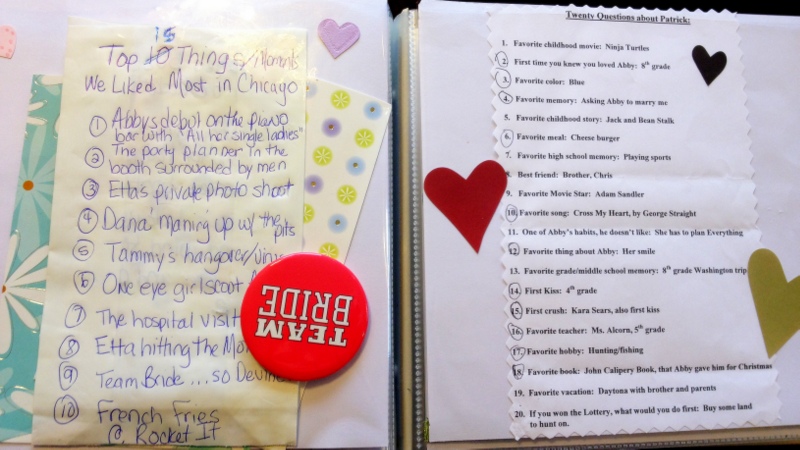 15
Top 10 Things/Moments
We Liked Most in Chicago
1 Abby's debut on the piano
bar with "All her single ladies"
2 The party planner in the
booth surrounded by men
3 Etta's private photo shoot
4 Dana' maning up w/ the pits
5 Tammy's hangover/
6 One eye girlscout
7 The hospital visit
8 Etta hitting the
9 Team Bride ... so
10 French Fries
@ Rocket It
TEAM
BRIDE
Twenty Questions about Patrick:
1. Favorite childhood movie: Ninja Turtles
2. First time you knew you loved Abby: 8th grade
3. Favorite color: Blue
4. Favorite memory: Asking Abby to marry me
5. Favorite childhood story: Jack and Bean Stalk
6. Favorite meal: Cheese burger
7. Favorite high school memory: Playing sports
8. Best friend: Brother, Chris
9. Favorite Movie Star: Adam Sandler
10. Favorite song: Cross My Heart, by George Straight
11. One of Abby's habits, he doesn't like: She has to plan Everything
12. Favorite thing about Abby: Her smile
13. Favorite grade/middle school memory: 8th grade Washington trip
14. First Kiss: 4th grade
15. First crush: Kara Sears, also first kiss
16. Favorite teacher: Ms. Alcorn, 5th grade
17. Favorite hobby: Hunting/fishing
18. Favorite book: John Calipery Book, that Abby gave him for Christmas
19. Favorite vacation: Daytona with brother and parents
20. If you won the Lottery, what would you do first: Buy some land
to hunt on.